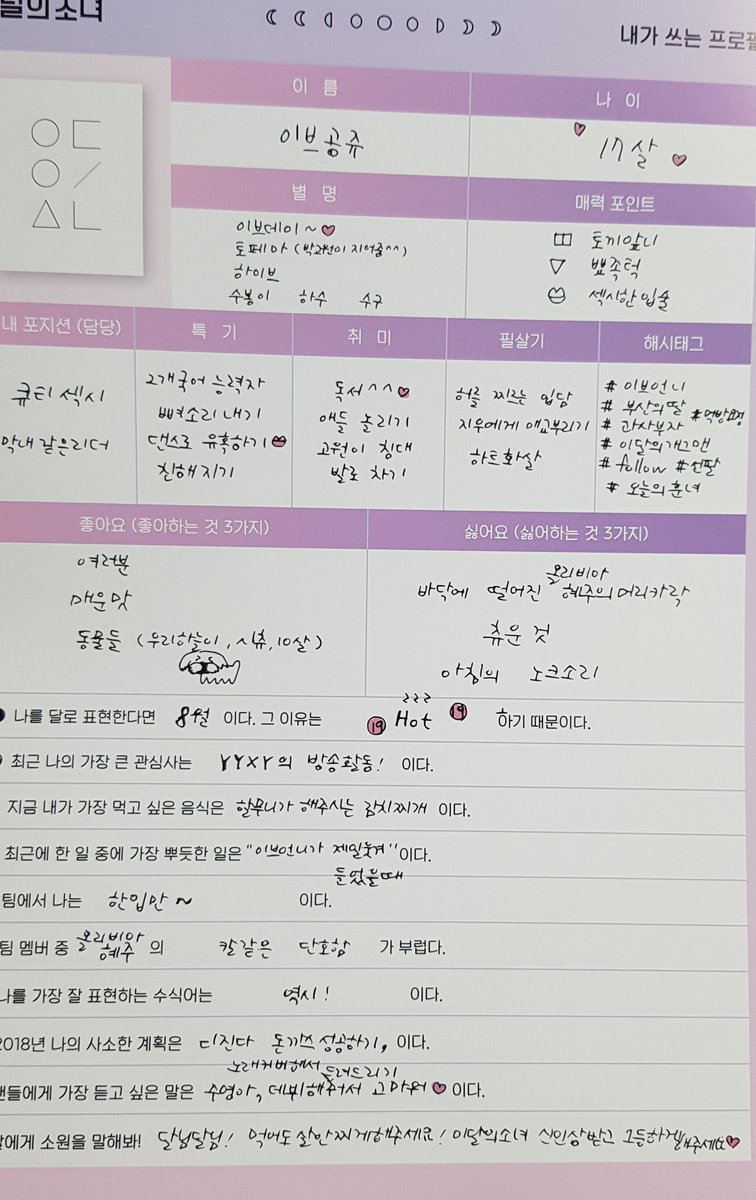 달의소녀
내가 쓰는 프로필
이 름
나 이
이브공쥬
17살
별 명
매력 포인트
이브데이~
토페마 (박고원이 지어줌^^)
하이브
수봉이 하수 수구
토끼앞니
뾰족턱
섹시한입술
내 포지션 (담당)
특 기
취 미
필살기
해시태그
큐티 섹시
막내 같은리더
2개국어 능력자
뼈소리 내기
댄스로 유혹하기
친해지기
독서^^
애들 놀리기
고원이 침대
발로 차기
허를 찌르는 입담
지우에게 애교부리기
하트화살
# 이브언니
# 부산의딸 #먹방요정
# 과사부자
# 이달의개그맨
# follow #선팔
# 오늘의훈녀
좋아요 (좋아하는 것 3가지)
싫어요 (싫어하는 것 3가지)
여러분
매운맛
동물들 (우리하늘이, 시츄, 10살)
올리비아
바닥에 떨어진 혜주의머리카락
츄운 것
아침의 노크소리
나를 달로 표현한다면 8월 이다. 그 이유는 19 Hot 19 하기 때문이다.
최근 나의 가장 큰 관심사는 YYXY의 방송활동! 이다.
지금 내가 가장 먹고 싶은 음식은 할무니가 해주시는 김치찌개 이다.
최근에 한 일 중에 가장 뿌듯한 일은 "이브언니가 제일웃겨" 이다.
들었을때
팀에서 나는 한입만~ 이다.
팀 멤버 중 올리비아 혜주 의 칼같은 단호함 가 부럽다.
나를 가장 잘 표현하는 수식어는 역시! 이다.
2018년 나의 사소한 계획은 디진다 돈까쓰 성공하기, 이다.
노래커버해서 들려드리기
팬들에게 가장 듣고 싶은 말은 수영아, 데뷔해줘서 고마워 이다.
달에게 소원을 말해봐! 달님달님! 먹어도살안찌게해주세요! 이달의소녀 신인상받고 1등하게해주세요